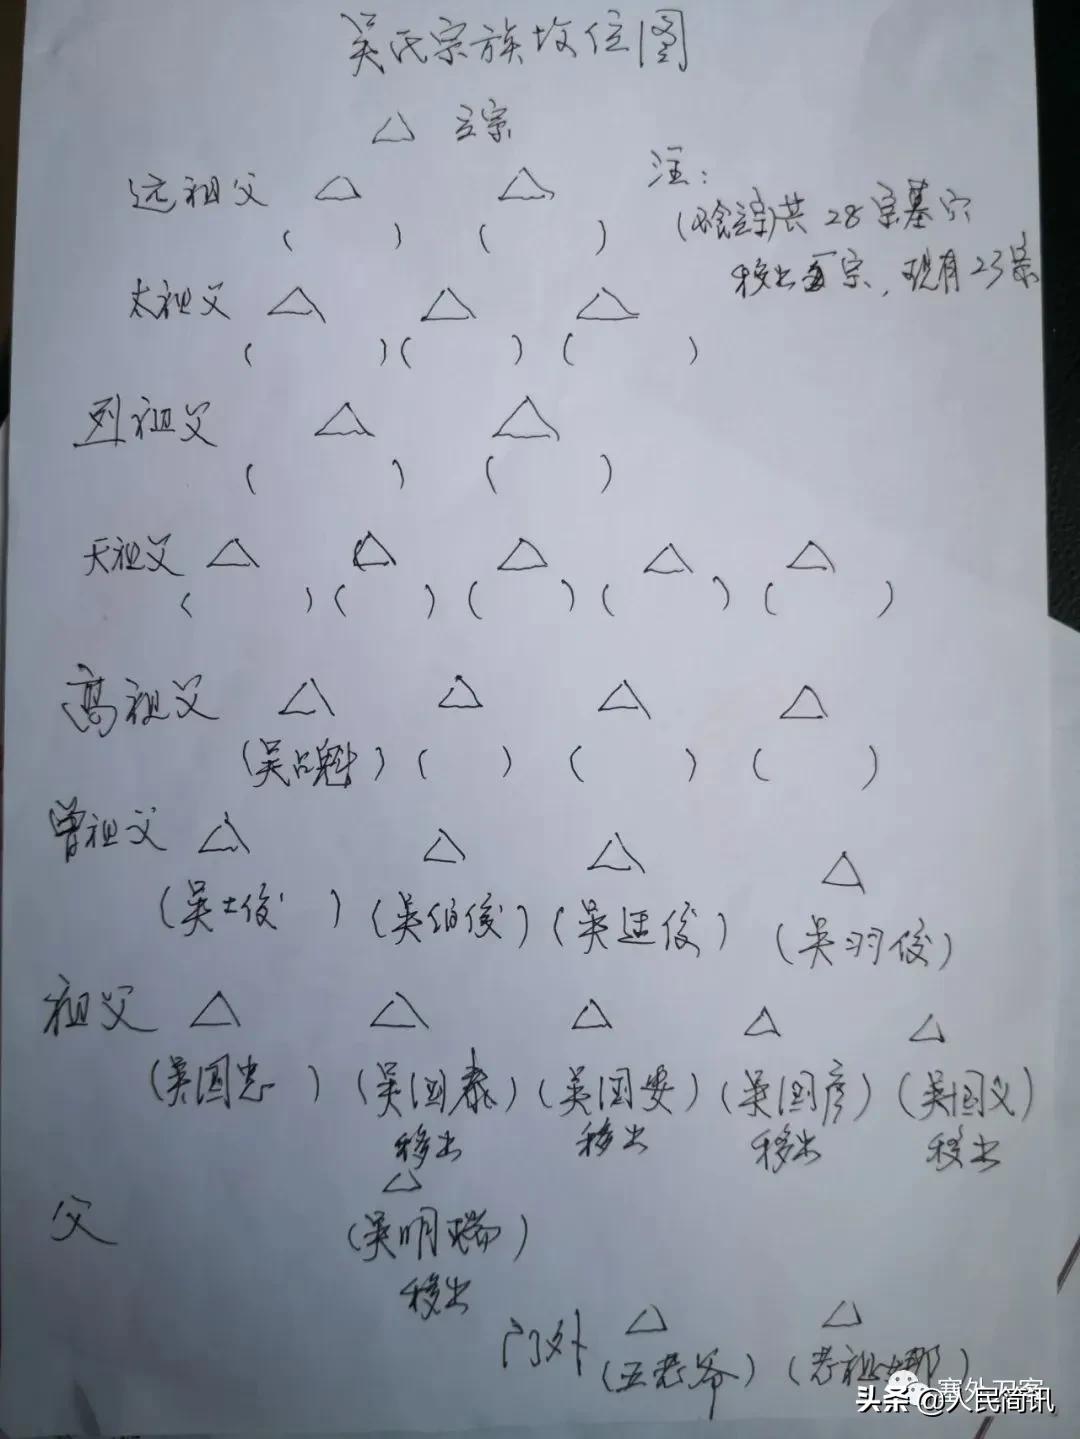 吴氏宗族坟位图
△ 立宗
远祖父 △ △
( ) ( )
注:
(不含立宗)共28宗墓穴
移出五宗,现有23宗
太祖父 △ △ △
( ) ( ) ( )
烈祖父 △ △
( ) ( )
天祖父 △ △ △ △ △
( ) ( ) ( ) ( ) ( )
高祖父 △ △ △ △
(吴占魁) ( ) ( ) ( )
曾祖父 △ △ △ △
(吴士俊) (吴伯俊) (吴廷俊) (吴羽俊)
祖父 △ △ △ △ △
(吴国忠) (吴国泰) (吴国安) (吴国彦) (吴国义)
移出 移出 移出 移出
父 △
(吴明瑞)
移出
门外 △ △
(五老爷) (老祖
塞外刀客
头条@人民简讯